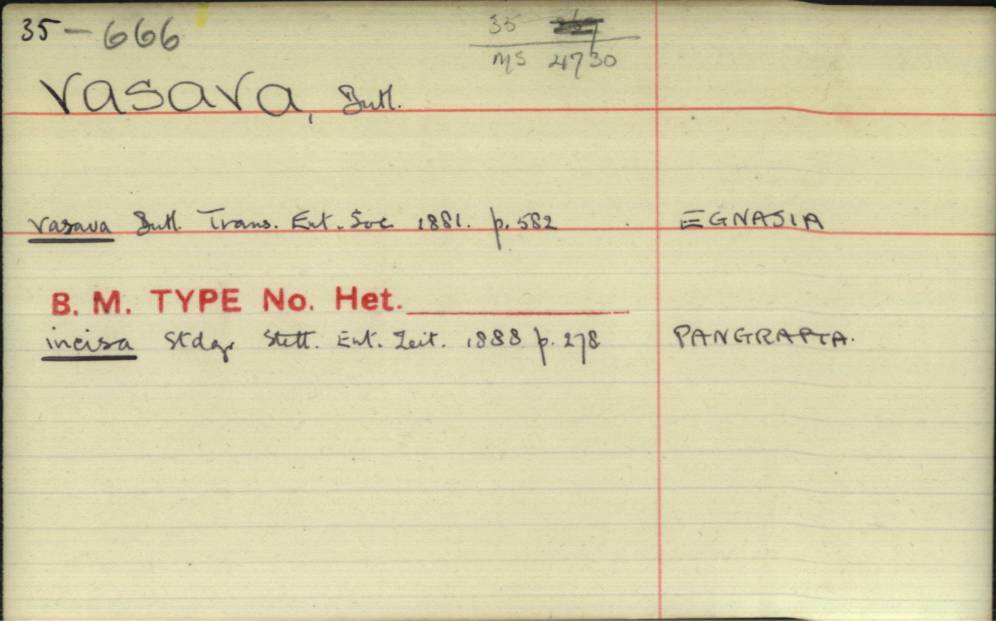 35-666
35
MS 4730
vasava, Butl.
vasava Butl. Trans. Ent. Soc 1881. p. 582 EGNASIA
B. M. TYPE No. Het.
incisa Stdgr Stett. Ent. Zeit. 1888 p. 278 PANGRAPTA.